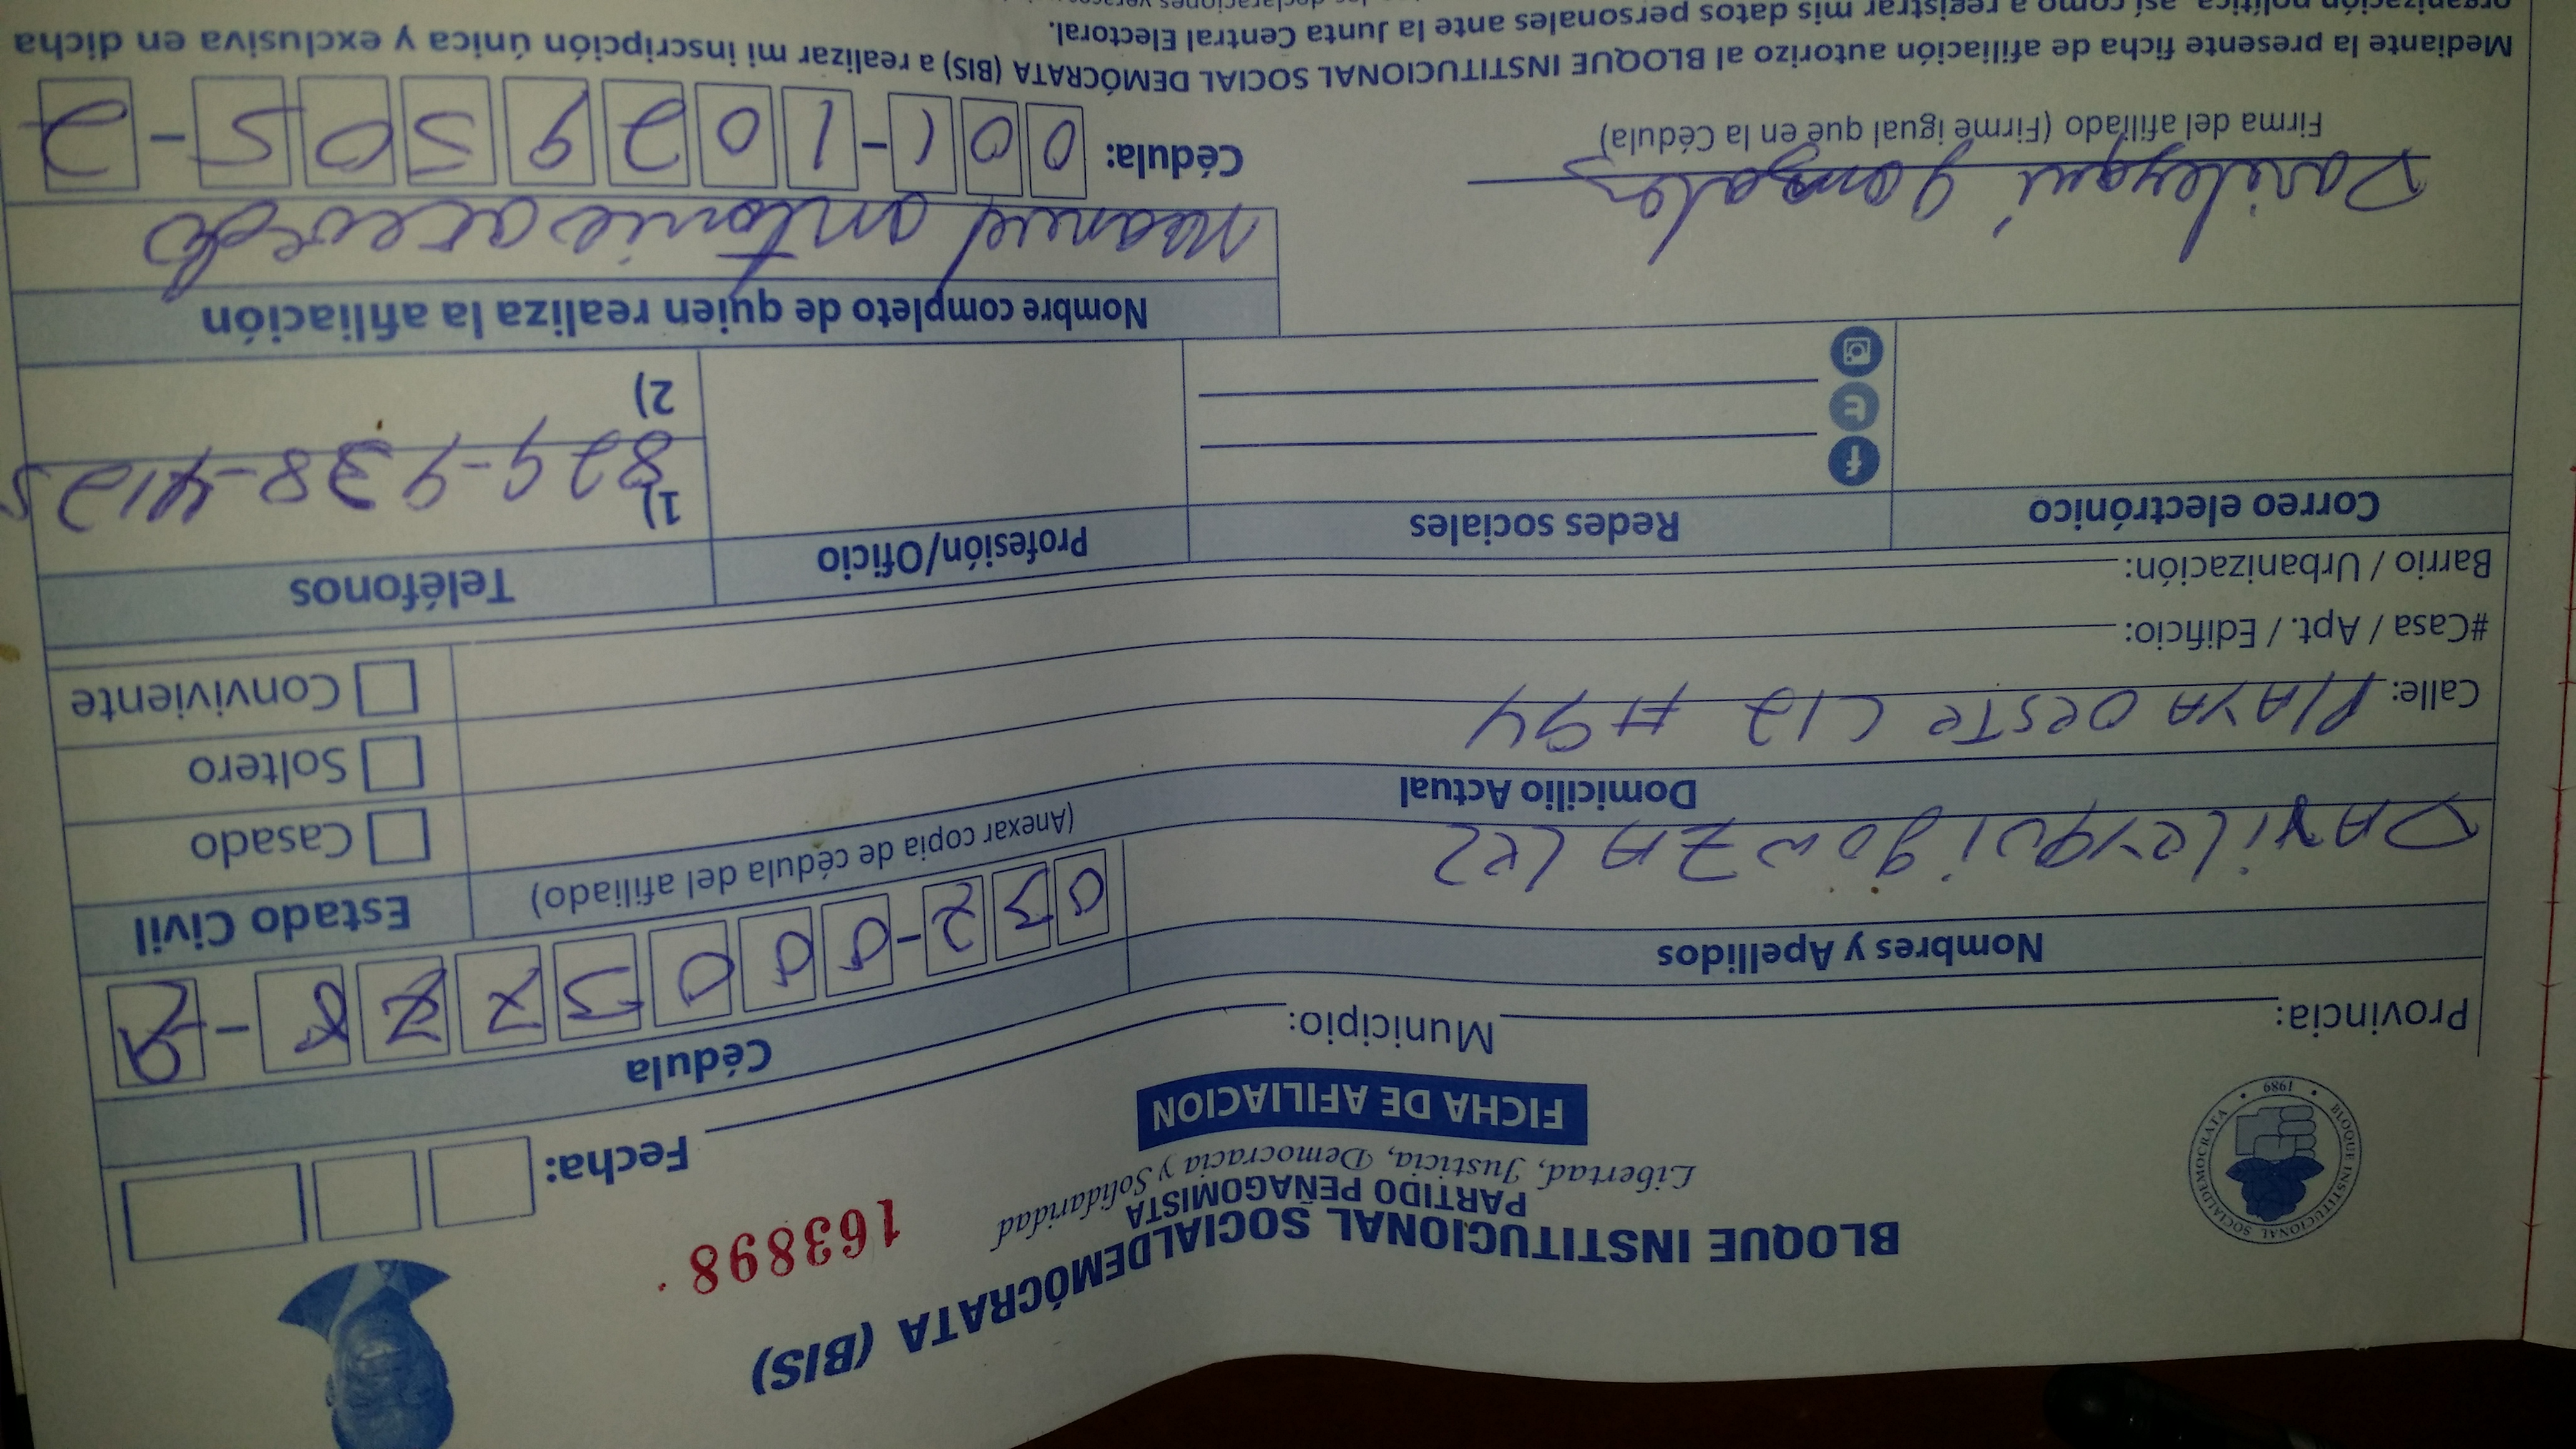 BLOQUE INSTITUCIONAL SOCIALDEMÓCRATA (BIS)
PARTIDO PEÑAGOMISTA
Libertad, Justicia, Democracia y Solidaridad
163898
FICHA DE AFILIACION
BLOQUE INSTITUCIONAL SOCIALDEMOCRATA
1989
Fecha:
Provincia: Municipio:
Cédula
Nombres y Apellidos
032-0000
Estado Civil
(Anexar copia de cédula del afiliado)
Casado
Domicilio Actual
Soltero
Calle: PlAYA oesTe C12 #94
Conviviente
#Casa / Apt. / Edificio:
Barrio / Urbanización:
Correo electrónico
Redes sociales
Profesión/Oficio
Teléfonos
1) 829-938-4125
2)
Nombre completo de quien realiza la afiliación
manuel antonio acevedo
Cédula: 001-1029505-2
Firma del afiliado (Firme igual que en la Cédula)
Mediante la presente ficha de afiliación autorizo al BLOQUE INSTITUCIONAL SOCIAL DEMÓCRATA (BIS) a realizar mi inscripción única y exclusiva en dicha
organización política, así como a registrar mis datos personales ante la Junta Central Electoral.